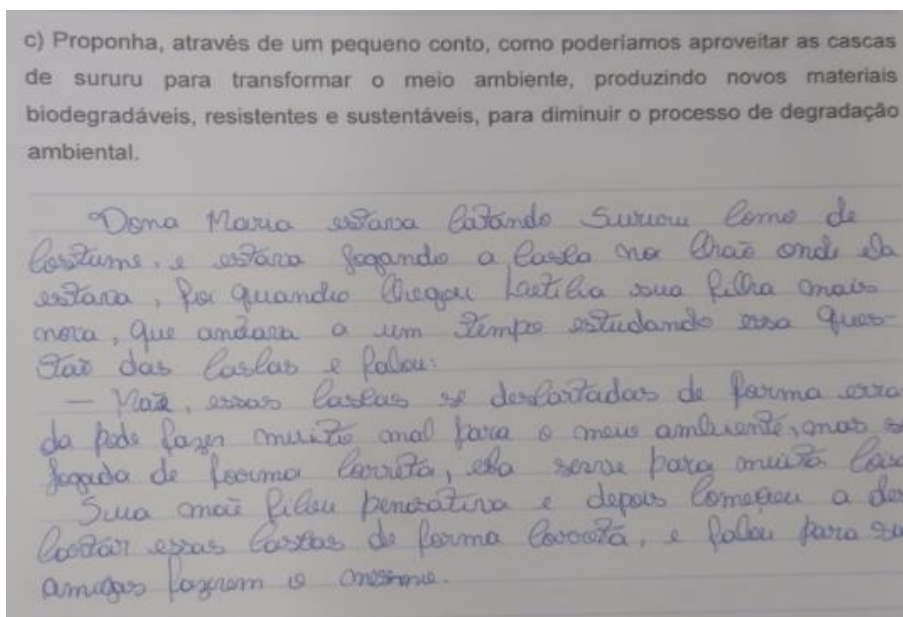 c) Proponha, através de um pequeno conto, como poderíamos aproveitar as cascas
de sururu para transformar o meio ambiente, produzindo novos materiais
biodegradáveis, resistentes e sustentáveis, para diminuir o processo de degradação
ambiental.
Dona Maria estava catando Sururu como de
costume, e estava jogando a casca no chão onde ela
estava, foi quando chegou Laetícia sua filha mais
nova, que andava a um tempo estudando essa ques-
tão das cascas e falou:
— Mãe, essas cascas se descartadas de forma erra
da pode fazer muito mal para o meio ambiente, mas se
jogada de forma correta, ela serve para muita cois
Sua mãe ficou pensativa e depois começou a des
cartar essas cascas de forma correta, e falou para su
amigas fazerem o mesmo.